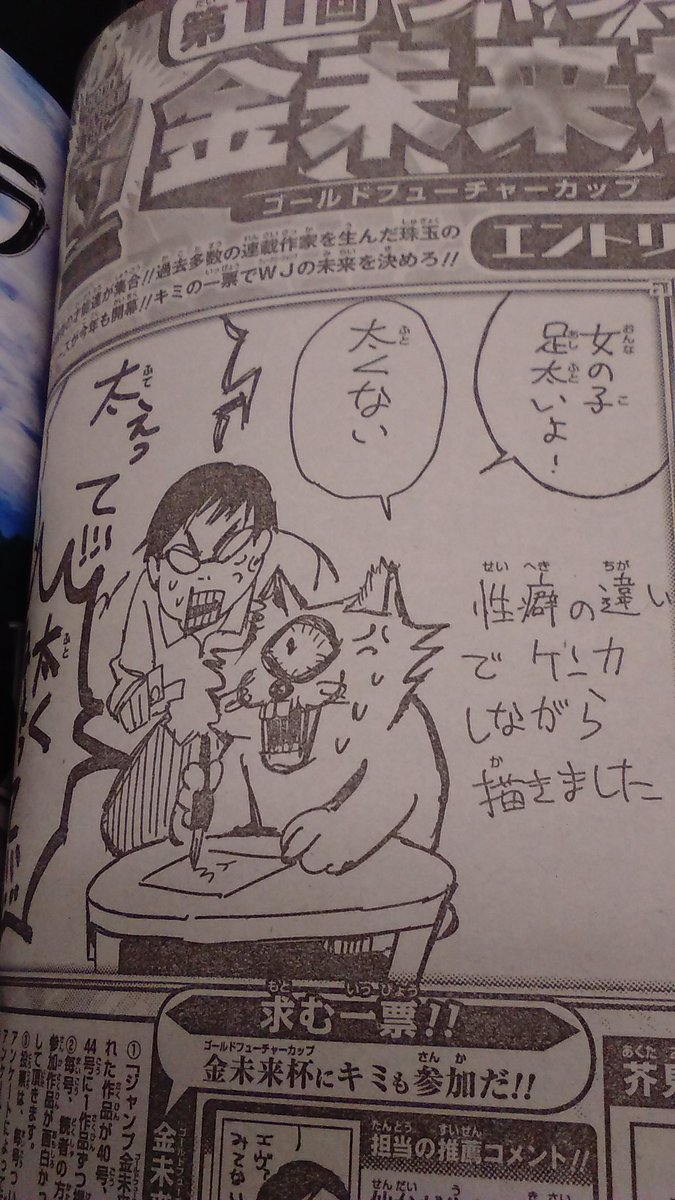 第11回
金未来
ゴールドフューチャーカップ
エントリ
過去多数の連載作家を生んだ珠玉の
が集合!!
キミの一票でWJの未来を決めろ!!
今年も開幕!!
女の子
足太いよ!
太くない
太えっ
て!!!
太く
性癖の違い
でケンカ
しながら
描きました
求む一票!!
金未来杯にキミも参加だ!!
ゴールドフューチャーカップ
担当の推薦コメント!!
芥見
①「ジャンプ金未
れた作品が40号、
44号に1作品ずつ
②毎号、読者の方
参加作品が面白か
して頂きます。
③投票は、毎号つい
金未来
みてない